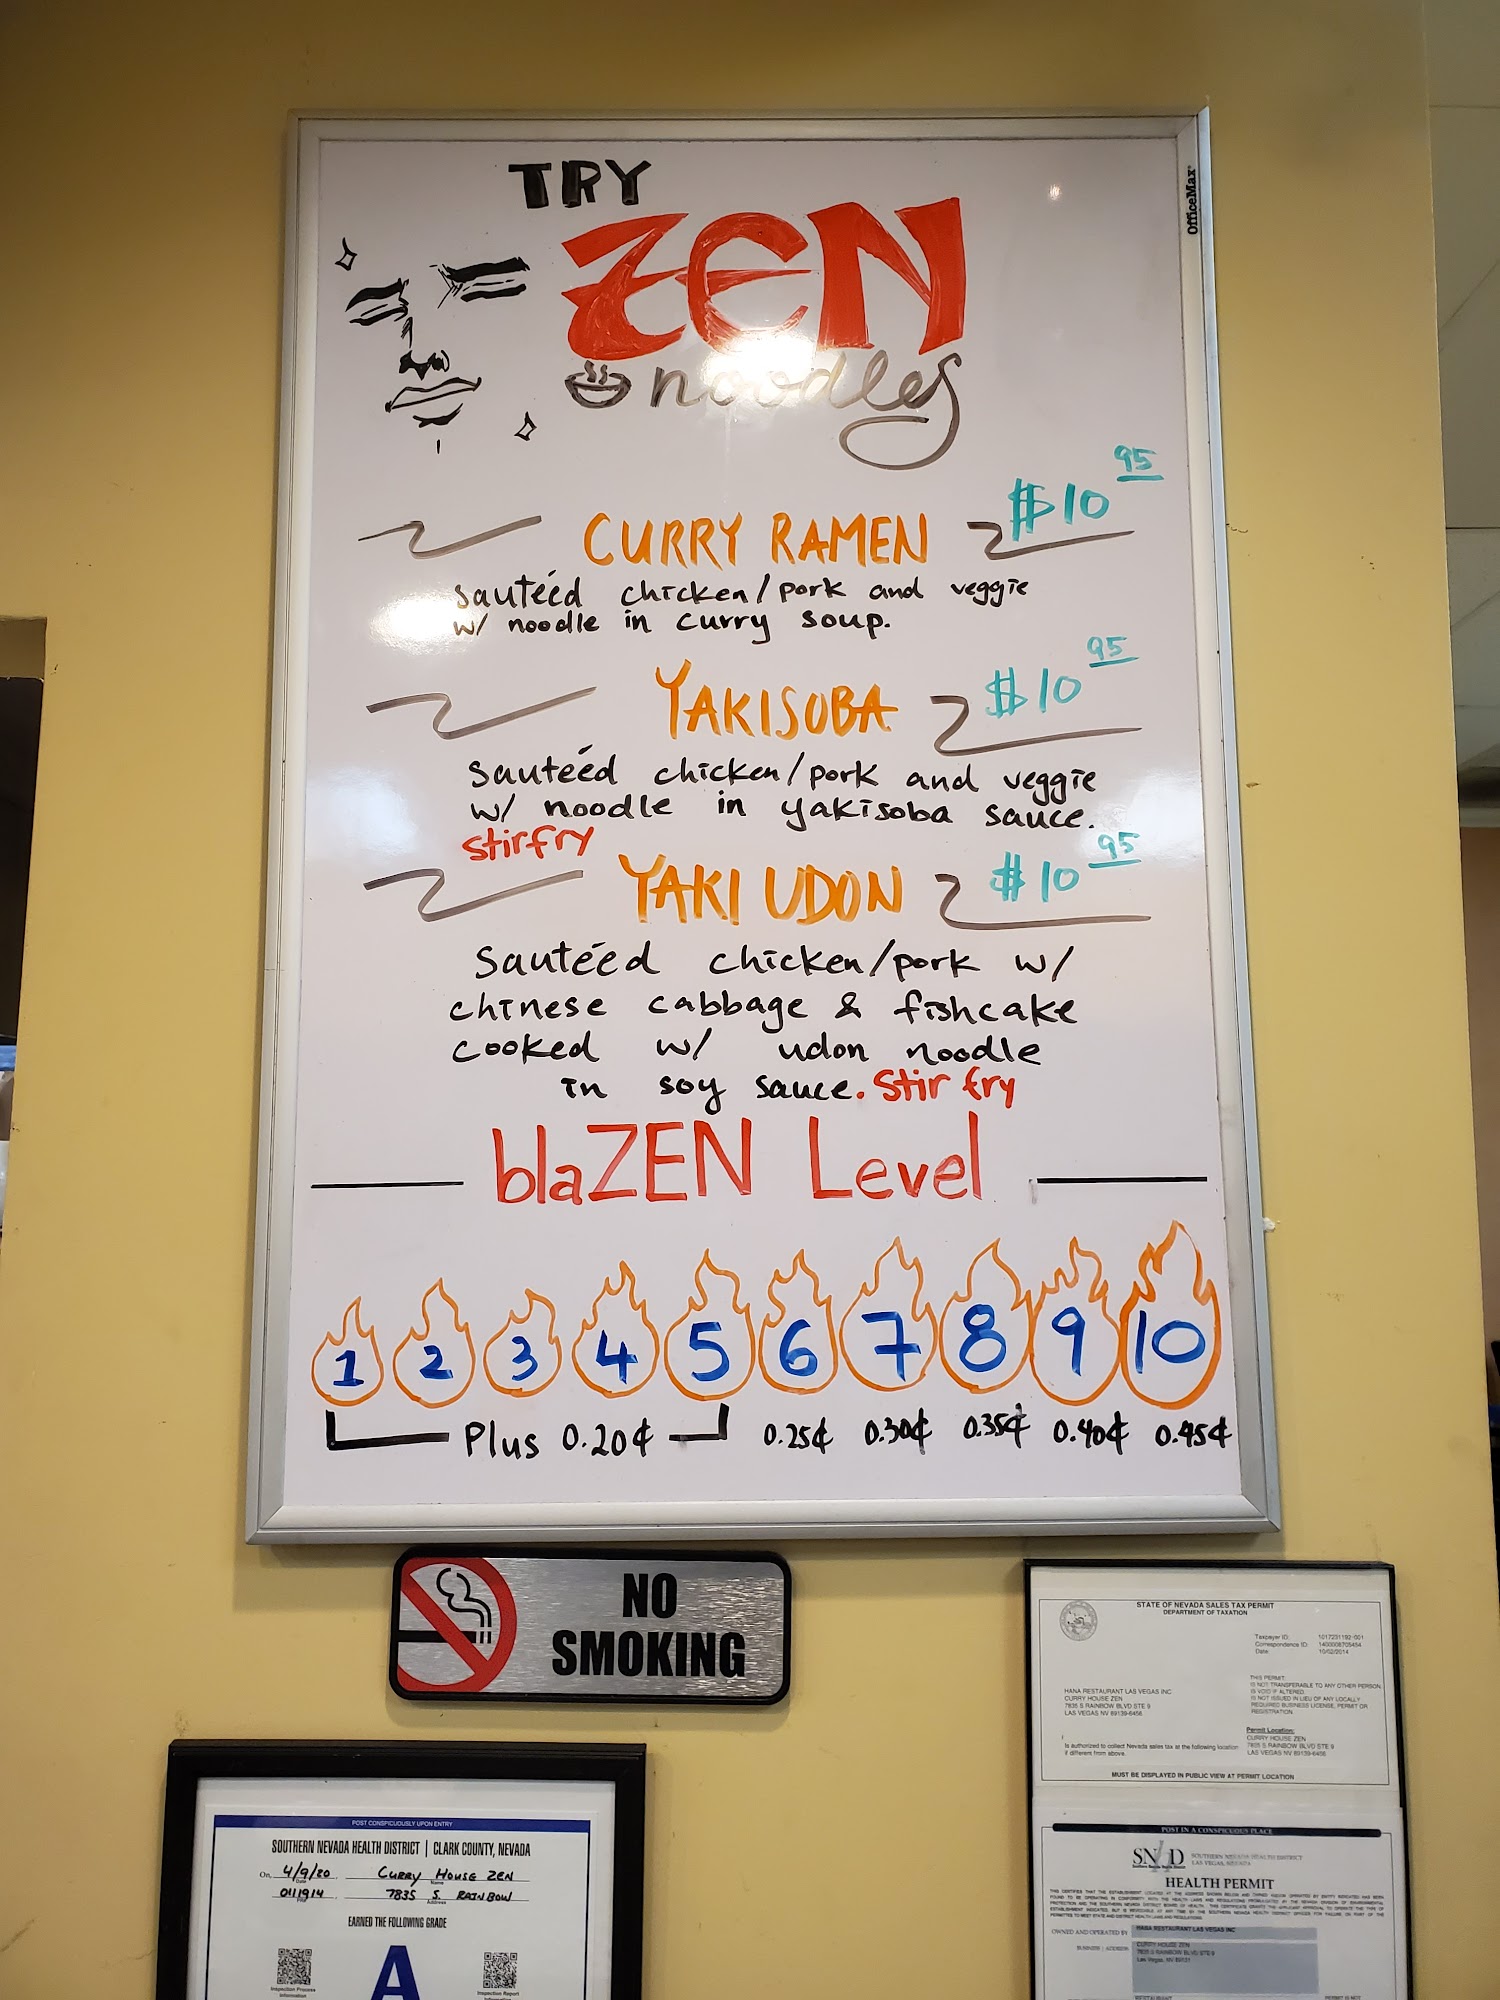 OfficeMax
TRY
ZEN
noodles
CURRY RAMEN $10 95
sautéed chicken/pork and veggie
w/ noodle in curry soup.
YAKISOBA $10 95
sautéed chicken/pork and veggie
w/ noodle in yakisoba sauce.
stirfry
YAKI UDON $10 95
sautéed chicken/pork w/
chinese cabbage & fishcake
cooked w/ udon noodle
in soy sauce. Stir fry
blaZEN Level
1 2 3 4 5 6 7 8 9 10
Plus 0.20¢ 0.25¢ 0.30¢ 0.35¢ 0.40¢ 0.45¢
NO
SMOKING
STATE OF NEVADA SALES TAX PERMIT
DEPARTMENT OF TAXATION
Taxpayer ID: 1017231192-001
Correspondence ID: 1400008705454
Date: 10/02/2014
THIS PERMIT:
IS NOT TRANSFERABLE TO ANY OTHER PERSON
IS VOID IF ALTERED.
IS NOT ISSUED IN LIEU OF ANY LOCALLY
REQUIRED BUSINESS LICENSE, PERMIT OR
REGISTRATION
HANA RESTAURANT LAS VEGAS INC
CURRY HOUSE ZEN
7835 S RAINBOW BLVD STE 9
LAS VEGAS NV 89139-6456
Is authorized to collect Nevada sales tax at the following location
if different from above.
Permit Location:
CURRY HOUSE ZEN
7835 S RAINBOW BLVD STE 9
LAS VEGAS NV 89139-6456
MUST BE DISPLAYED IN PUBLIC VIEW AT PERMIT LOCATION
POST CONSPICUOUSLY UPON ENTRY
SOUTHERN NEVADA HEALTH DISTRICT | CLARK COUNTY, NEVADA
On, 4/9/20 CURRY HOUSE ZEN
Date Name
7835 S. RAINBOW
Address
EARNED THE FOLLOWING GRADE
A
Inspection Process
Information
Inspection Report
POST IN A CONSPICUOUS PLACE
SNHD
SOUTHERN NEVADA HEALTH DISTRICT
LAS VEGAS, NEVADA
HEALTH PERMIT
OWNED AND OPERATED BY HANA RESTAURANT LAS VEGAS INC
BUSINESS | ADDRESS CURRY HOUSE ZEN
7835 S RAINBOW BLVD STE 9
Las Vegas, NV